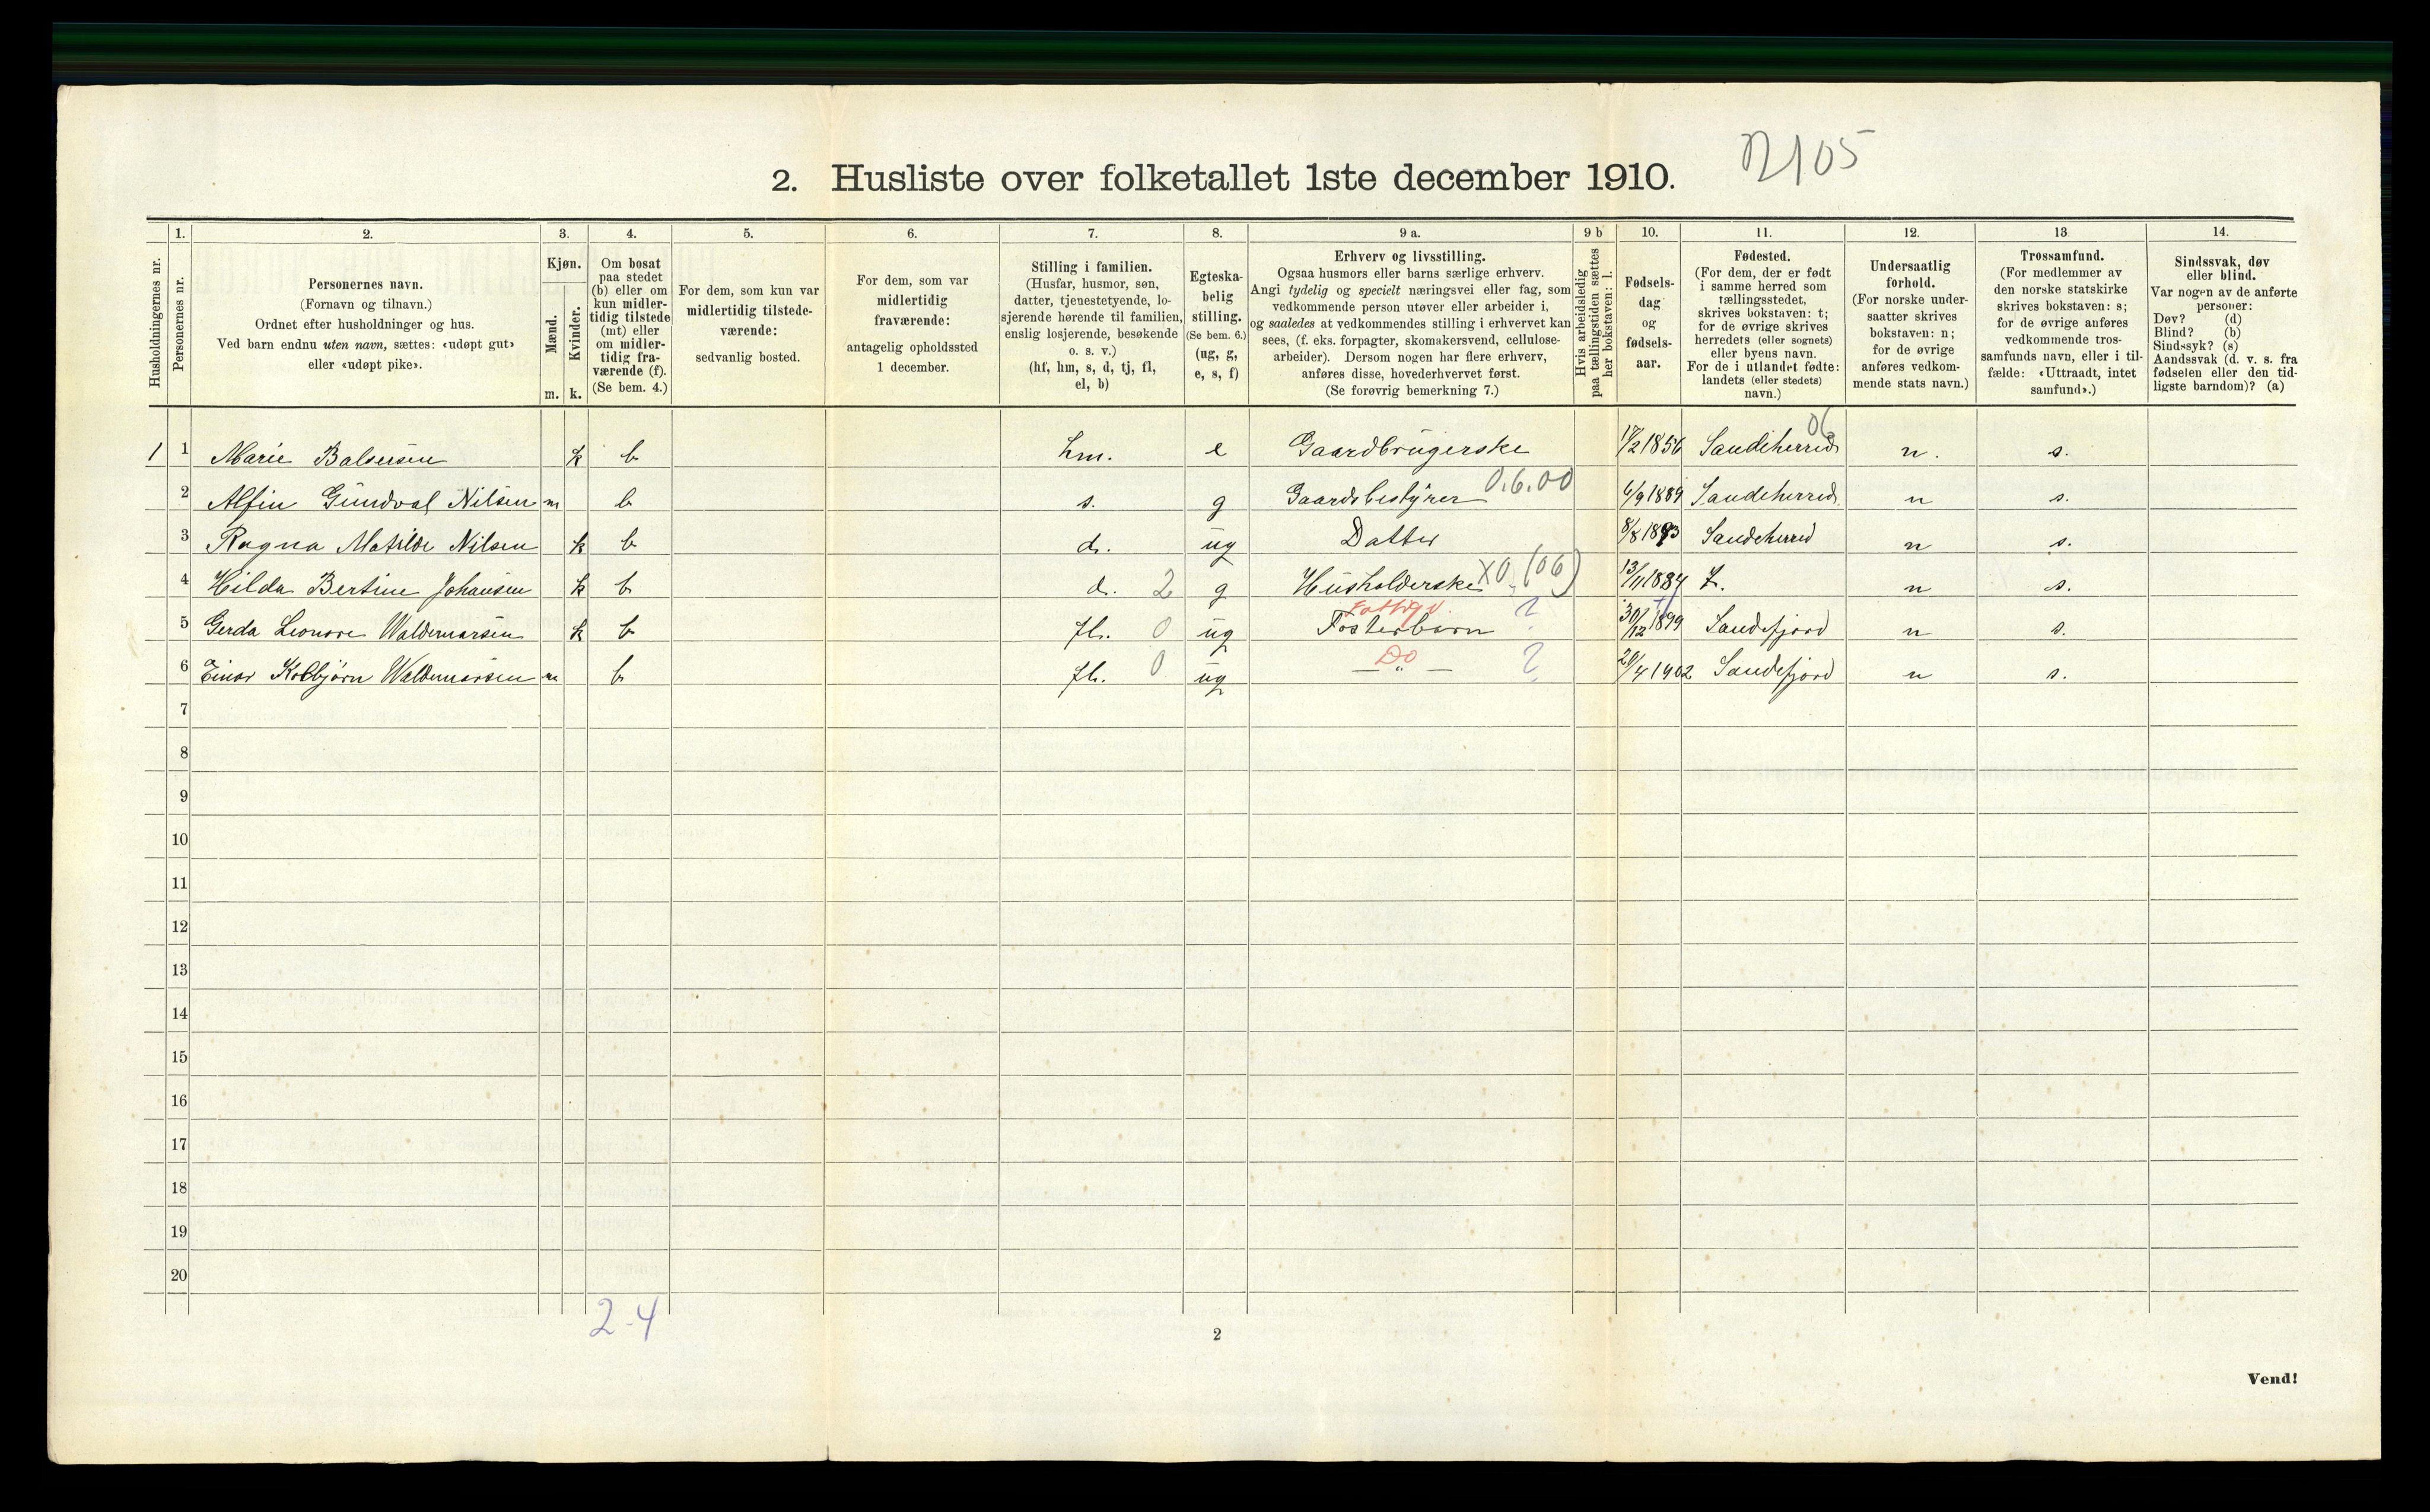 2. Husliste over folketallet 1ste december 1910.
1. 2. 3. 4. 5. 6. 7. 8. 9 a. 9 b 10. 11. 12. 13. 14.
Husholdningernes nr.
Personernes nr.
Personernes navn.
(Fornavn og tilnavn.)
Ordnet efter husholdninger og hus.
Ved barn endnu uten navn, sættes: «udøpt gut»
eller «udøpt pike».
Kjøn.
Mænd.
Kvinder.
m. k.
Om bosat
paa stedet
(b) eller om
kun midler-
tidig tilstede
(mt) eller
om midler-
tidig fra-
værende (f).
(Se bem. 4.)
For dem, som kun var
midlertidig tilstede-
værende:
sedvanlig bosted.
For dem, som var
midlertidig
fraværende:
antagelig opholdssted
1 december.
Stilling i familien.
(Husfar, husmor, søn,
datter, tjenestetyende, lo-
sjerende hørende til familien,
enslig losjerende, besøkende
o. s. v.)
(hf, hm, s, d, tj, fl,
el, b)
Egteska-
belig
stilling.
(Se bem. 6.)
(ug, g,
e, s, f)
Erhverv og livsstilling.
Ogsaa husmors eller barns særlige erhverv.
Angi tydelig og specielt næringsvei eller fag, som
vedkommende person utøver eller arbeider i,
og saaledes at vedkommendes stilling i erhvervet kan
sees, (f. eks. forpagter, skomakersvend, cellulose-
arbeider). Dersom nogen har flere erhverv,
anføres disse, hovederhvervet først.
(Se forøvrig bemerkning 7.)
Hvis arbeidsledig
paa tællingstiden sættes
her bokstaven: l.
Fødsels-
dag
og
fødsels-
aar.
Fødested.
(For dem, der er født
i samme herred som
tællingsstedet,
skrives bokstaven: t;
for de øvrige skrives
herredets (eller sognets)
eller byens navn.
For de i utlandet fødte:
landets (eller stedets)
navn.)
Undersaatlig
forhold.
(For norske under-
saatter skrives
bokstaven: n;
for de øvrige
anføres vedkom-
mende stats navn.)
Trossamfund.
(For medlemmer av
den norske statskirke
skrives bokstaven: s;
for de øvrige anføres
vedkommende tros-
samfunds navn, eller i til-
fælde: «Uttraadt, intet
samfund».)
Sindssvak, døv
eller blind.
Var nogen av de anførte
personer:
Døv? (d)
Blind? (b)
Sindssyk? (s)
Aandssvak (d. v. s. fra
fødselen eller den tid-
ligste barndom)? (a)
06
1 1 Marie Balsersen k b hm. e Gaardbrugerske 17/2 1856 Sandeherred n. s.
2 Alfin Gundval Nilsen m b s. g Gaardsbestyrer 0.6.00 6/9 1889 Sandeherred n s.
3 Ragna Matilde Nilsen k b d. ug Datter 8/8 1893 Sandeherred n s.
4 Hilda Bertine Johansen k b d. 2 g Husholderske X0 (06) 13/11 1884 t. n s.
5 Gerda Leonore Waldemarsen k b fl. 0 ug Fosterbarn ? 30/12 1899 Sandefjord n s.
6 Einar Kolbjørn Waldemarsen m b fl. 0 ug — " — Do ? 20/4 1902 Sandefjord n s.
7
8
9
10
11
12
13
14
15
16
17
18
19
20
2-4
2
Vend!